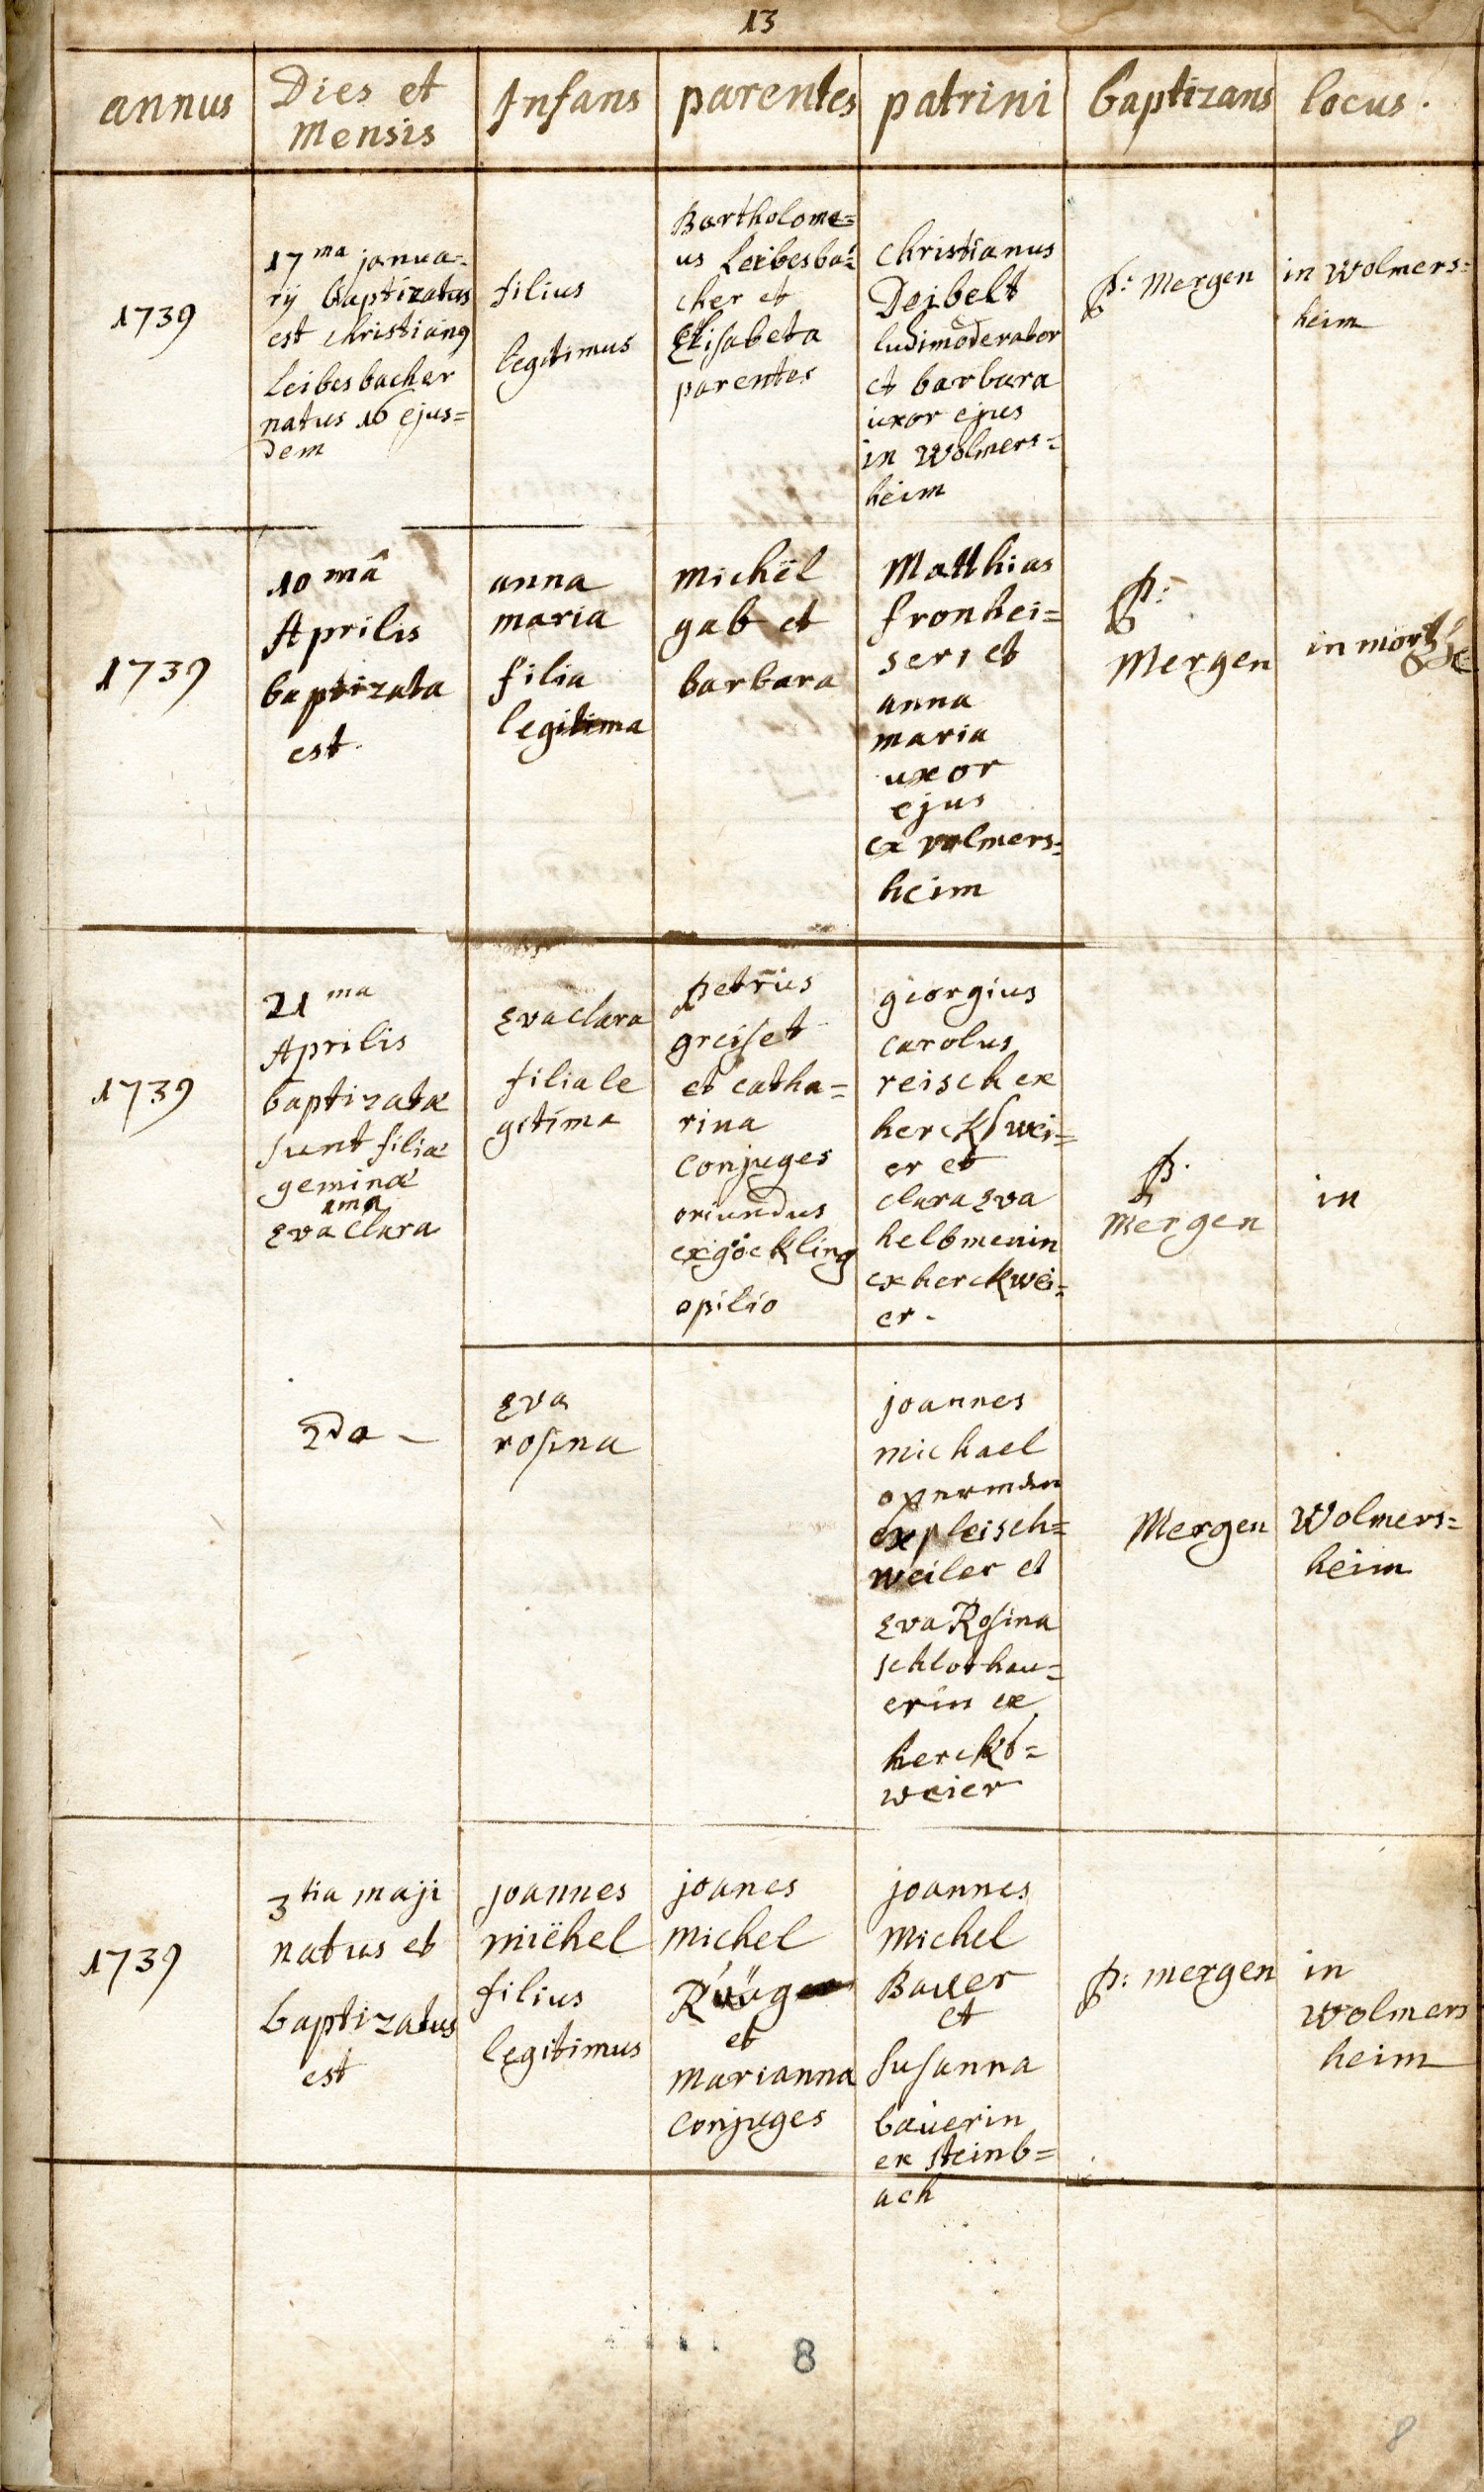 13
annus
Dies et
Mensis
Infans
parentes
patrini
baptizans
locus.
1739
17ma janua=
rij baptizatus
est christiang
Leibesbacher
natus 16 ejus=
dem
filius
legitimus
Bartholome=
us Leibesba=
cher et
Elisabeta
parentes
christianus
Deibelt
ludimoderator
et barbara
uxor ejus
in Wolmers=
heim
p: Mergen
in Wolmers=
heim
1739
10 mâ
Aprilis
baptizata
est.
anna
maria
filia
legitima
michël
gab et
barbara
Matthias
fronhei=
ser et
anna
maria
uxor
ejus
ex volmers=
heim
p:
Mergen
in
1739
21 ma
Aprilis
baptizatæ
sunt filiæ
geminæ
1ma
Eva Clara
Eva clara
filia le
gitima
petrus
greiset
et catha=
rina
conjuges
oriundus
ex göckling
opilio
georgius
carolus
reisch ex
herckswei=
er et
clara Eva
helbmenin
ex herckwei=
er.
p.
Mergen
in
2da -
Eva
rosina
joannes
michael
ex pleisch=
weiler et
Eva Rosina
schlothau=
erin ex
hercks=
weier
Mergen
Wolmers=
heim
1739
3tia maji
natus et
baptizatus
est
joannes
miëhel
filius
legitimus
joanes
michel
et
marianna
conjuges
joannes
Michel
Bauer
et
susanna
bauerin
ex steinb=
ach
p: mergen
in
wolmers
heim
8
8